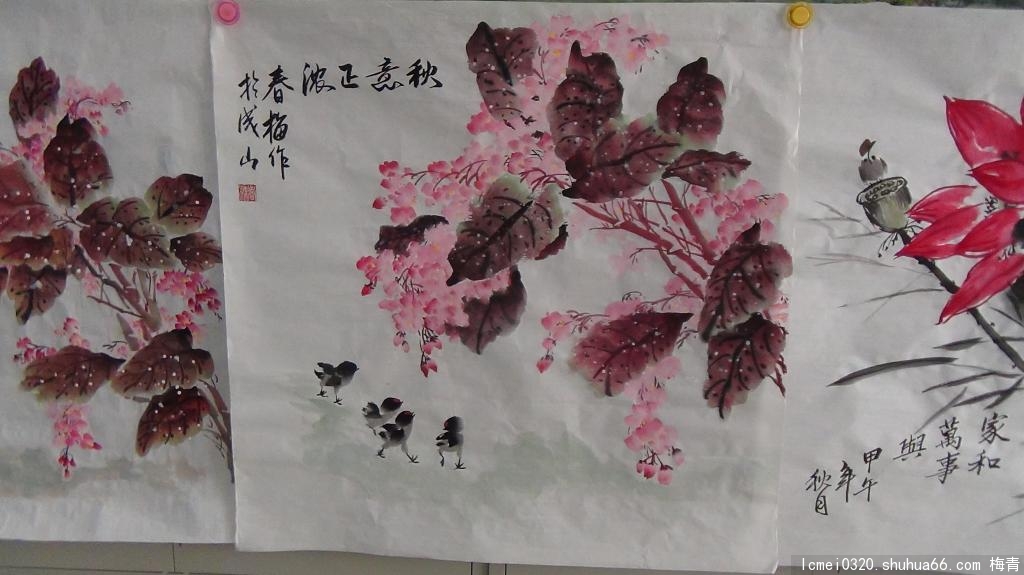 秋意正浓
春梅作
於成山
家和
萬事
興
甲午
年
秋月
lcmei0320.shuhua66.com 梅青